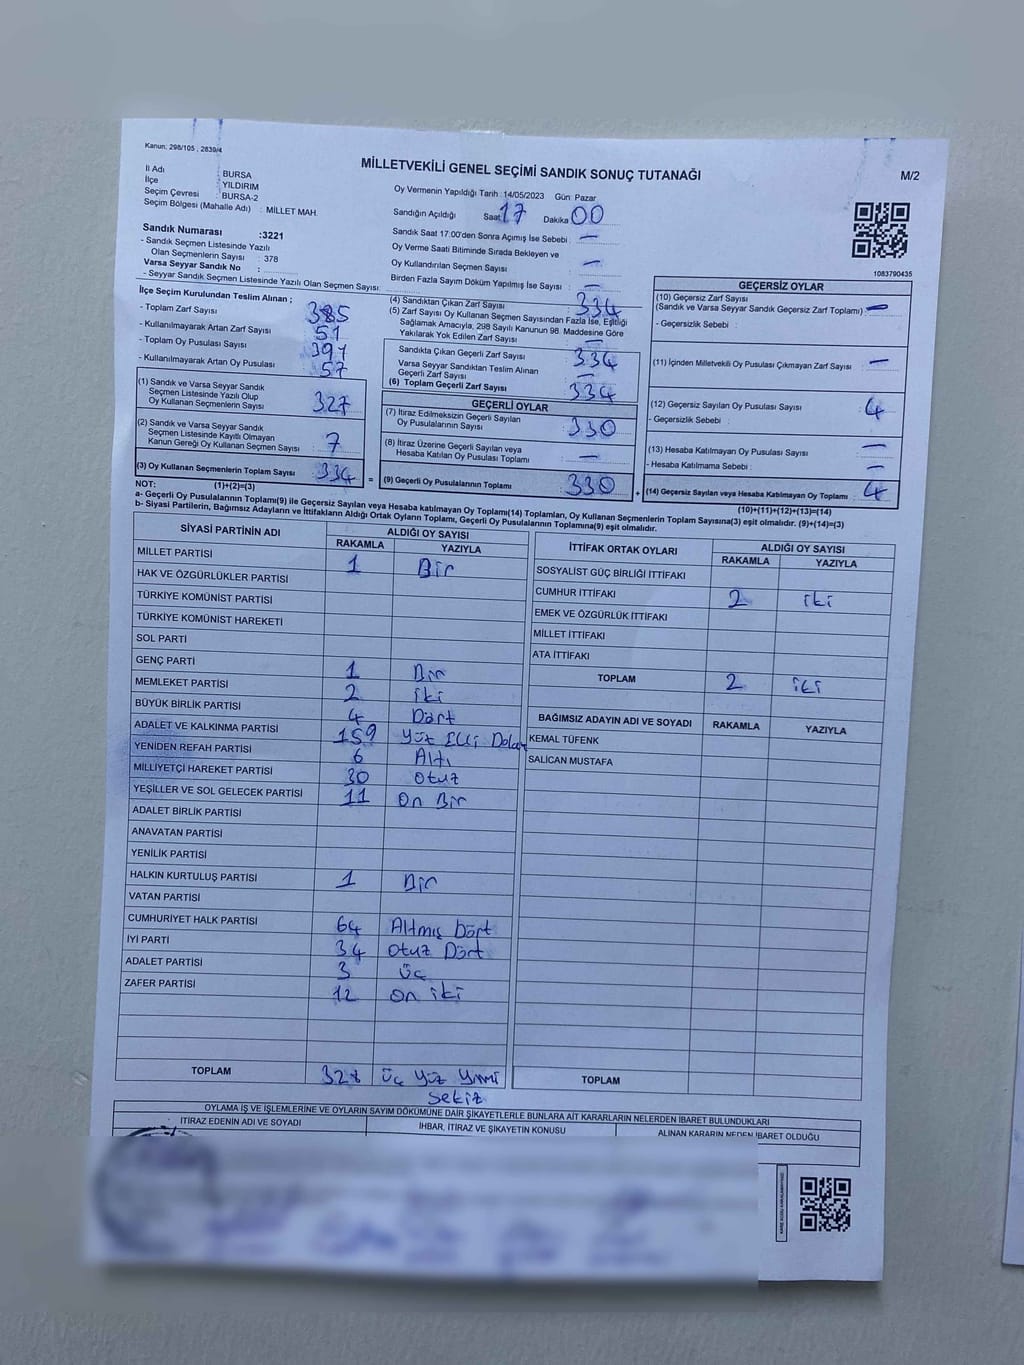 Kanun: 298/105 , 2839/4
MİLLETVEKİLİ GENEL SEÇİMİ SANDIK SONUÇ TUTANAĞI
M/2
İl Adı : BURSA
İlçe : YILDIRIM
Seçim Çevresi : BURSA-2
Seçim Bölgesi (Mahalle Adı) : MİLLET MAH.
Sandık Numarası :3221
- Sandık Seçmen Listesinde Yazılı
Olan Seçmenlerin Sayısı : 378
Varsa Seyyar Sandık No :
- Seyyar Sandık Seçmen Listesinde Yazılı Olan Seçmen Sayısı:
Oy Vermenin Yapıldığı Tarih : 14/05/2023 Gün: Pazar
Sandığın Açıldığı Saat 17 Dakika 00
Sandık Saat 17:00'den Sonra Açımış İse Sebebi : —
Oy Verme Saati Bitiminde Sırada Bekleyen ve
Oy Kullandırılan Seçmen Sayısı : —
Birden Fazla Sayım Döküm Yapılmış İse Sayısı : —
1083790435
İlçe Seçim Kurulundan Teslim Alınan ;
- Toplam Zarf Sayısı : 385
- Kullanılmayarak Artan Zarf Sayısı : 51
- Toplam Oy Pusulası Sayısı : 391
- Kullanılmayarak Artan Oy Pusulası : 57
(1) Sandık ve Varsa Seyyar Sandık
Seçmen Listesinde Yazılı Olup
Oy Kullanan Seçmenlerin Sayısı : 327
(2) Sandık ve Varsa Seyyar Sandık
Seçmen Listesinde Kayıtlı Olmayan
Kanun Gereği Oy Kullanan Seçmen Sayısı : 7
(3) Oy Kullanan Seçmenlerin Toplam Sayısı : 334
(4) Sandıktan Çıkan Zarf Sayısı : 334
(5) Zarf Sayısı Oy Kullanan Seçmen Sayısından Fazla İse, Eşitliği
Sağlamak Amacıyla, 298 Sayılı Kanunun 98. Maddesine Göre
Yakılarak Yok Edilen Zarf Sayısı : —
Sandıkta Çıkan Geçerli Zarf Sayısı : 334
Varsa Seyyar Sandıktan Teslim Alınan
Geçerli Zarf Sayısı : —
(6) Toplam Geçerli Zarf Sayısı : 334
GEÇERLİ OYLAR
(7) İtiraz Edilmeksizin Geçerli Sayılan
Oy Pusulalarının Sayısı : 330
(8) İtiraz Üzerine Geçerli Sayılan veya
Hesaba Katılan Oy Pusulası Toplamı : —
= (9) Geçerli Oy Pusulalarının Toplamı : 330
GEÇERSİZ OYLAR
(10) Geçersiz Zarf Sayısı
(Sandık ve Varsa Seyyar Sandık Geçersiz Zarf Toplamı) : —
- Geçersizlik Sebebi :
(11) İçinden Milletvekili Oy Pusulası Çıkmayan Zarf Sayısı : —
(12) Geçersiz Sayılan Oy Pusulası Sayısı : 4
- Geçersizlik Sebebi :
(13) Hesaba Katılmayan Oy Pusulası Sayısı : —
- Hesaba Katılmama Sebebi : —
+ (14) Geçersiz Sayılan veya Hesaba Katılmayan Oy Toplamı : 4
NOT: (1)+(2)=(3)
(10)+(11)+(12)+(13)=(14)
a- Geçerli Oy Pusulalarının Toplamı(9) ile Geçersiz Sayılan veya Hesaba katılmayan Oy Toplamı(14) Toplamları, Oy Kullanan Seçmenlerin Toplam Sayısına(3) eşit olmalıdır. (9)+(14)=(3)
b- Siyasi Partilerin, Bağımsız Adayların ve İttifakların Aldığı Ortak Oyların Toplamı, Geçerli Oy Pusulalarının Toplamına(9) eşit olmalıdır.
SİYASİ PARTİNİN ADI ALDIĞI OY SAYISI
RAKAMLA YAZIYLA
MİLLET PARTİSİ 1 Bir
HAK VE ÖZGÜRLÜKLER PARTİSİ
TÜRKİYE KOMÜNİST PARTİSİ
TÜRKİYE KOMÜNİST HAREKETİ
SOL PARTİ
GENÇ PARTİ 1 Bir
MEMLEKET PARTİSİ 2 iki
BÜYÜK BİRLİK PARTİSİ 4 Dört
ADALET VE KALKINMA PARTİSİ 159 Yüz Elli Dokuz
YENİDEN REFAH PARTİSİ 6 Altı
MİLLİYETÇİ HAREKET PARTİSİ 30 Otuz
YEŞİLLER VE SOL GELECEK PARTİSİ 11 On Bir
ADALET BİRLİK PARTİSİ
ANAVATAN PARTİSİ
YENİLİK PARTİSİ
HALKIN KURTULUŞ PARTİSİ 1 Bir
VATAN PARTİSİ
CUMHURİYET HALK PARTİSİ 64 Altmış Dört
İYİ PARTİ 34 Otuz Dört
ADALET PARTİSİ 3 üç
ZAFER PARTİSİ 12 On iki
TOPLAM 328 üç Yüz Yirmi
Sekiz
İTTİFAK ORTAK OYLARI ALDIĞI OY SAYISI
RAKAMLA YAZIYLA
SOSYALİST GÜÇ BİRLİĞİ İTTİFAKI
CUMHUR İTTİFAKI 2 iki
EMEK VE ÖZGÜRLÜK İTTİFAKI
MİLLET İTTİFAKI
ATA İTTİFAKI
TOPLAM 2 iki
BAĞIMSIZ ADAYIN ADI VE SOYADI RAKAMLA YAZIYLA
KEMAL TÜFENK
SALİCAN MUSTAFA
TOPLAM
OYLAMA İŞ VE İŞLEMLERİNE VE OYLARIN SAYIM DÖKÜMÜNE DAİR ŞİKAYETLERLE BUNLARA AİT KARARLARIN NELERDEN İBARET BULUNDUKLARI
İTİRAZ EDENİN ADI VE SOYADI İHBAR, İTİRAZ VE ŞİKAYETİN KONUSU ALINAN KARARIN NEDEN İBARET OLDUĞU